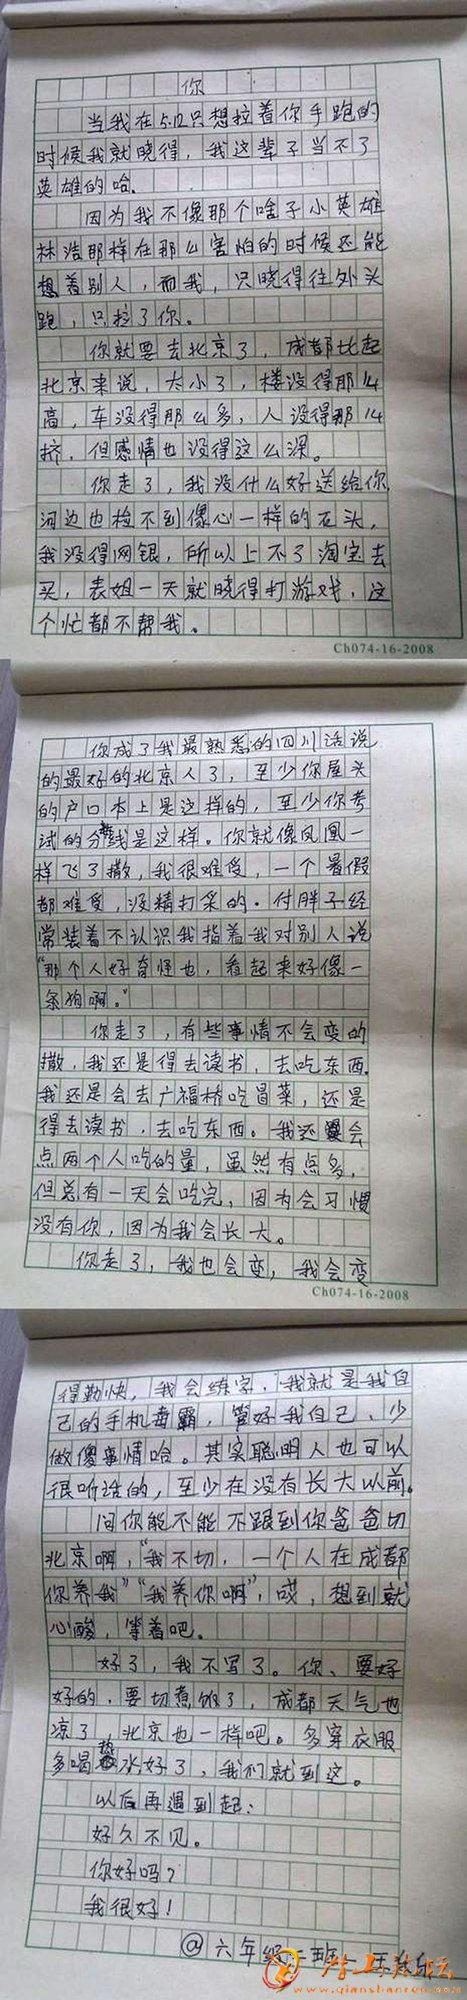 你
当我在5.12只想拉着你手跑的
时候我就晓得，我这辈子当不了
英雄的哈.
因为我不像那个啥子小英雄
林浩那样在那么害怕的时候还能
想着别人，而我，只晓得往外头
跑，只拉了你。
你就要去北京了，成都比起
北京来说，太小了，楼没得那么
高，车没得那么多，人没得那么
挤，但感情也没得这么深。
你走了，我没什么好送给你，
河边也捡不到像心一样的石头，
我没得网银，所以上不了淘宝去
买，表姐一天就晓得打游戏，这
个忙都不帮我。
Ch074-16-2008
你成了我最熟悉的四川话说
的最好的北京人了，至少你屋头
的户口本上是这样的，至少你考
试的分数线是这样。你就像凤凰一
样飞了撒，我很难受，一个暑假
都难受，没精打采的.付胖子经
常装着不认识我指着我对别人说
“那个人好奇怪也，看起来好像一
条狗啊。”
你走了，有些事情不会变的
撒，我还是得去读书，去吃东西.
我还是会去广福桥吃冒菜，还是
得去读书，去吃东西。我还是会
点两个人吃的量，虽然有点多，
但总有一天会吃完，因为会习惯
没有你，因为我会长大。
你走了，我也会变，我会变
Ch074-16-2008
得勤快，我会练字，我就是我自
己的手机毒霸，管好我自己、少
做傻事情哈。其实聪明人也可以
很听话的，至少在没有长大以前。
问你能不能不跟到你爸爸切
北京啊，“我不切，一个人在成都
你养我”“我养你啊”，哎，想到就
心酸，等着吧。
好了，我不写了。你、要好
好的，要切煮饭了，成都天气也
凉了，北京也一样吧。多穿衣服
多喝热水好了，我们就到这。
以后再遇到起：
好久不见。
你好吗？
我很好！
@六年级二班
www.qianshanren.com